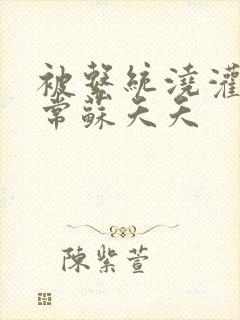 被繫統澆灌
常蘇夭夭
陳紫萱